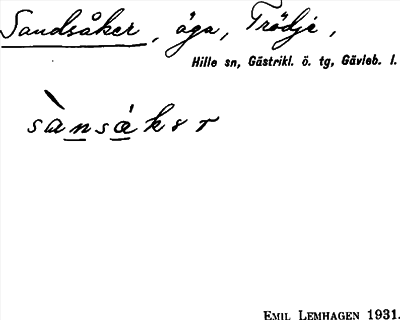 Sandsåker, äga, Trödje,
Hille sn, Gästrikl. ö. tg, Gävleb. l.
sànsákər
EMIL LEMHAGEN 1931.